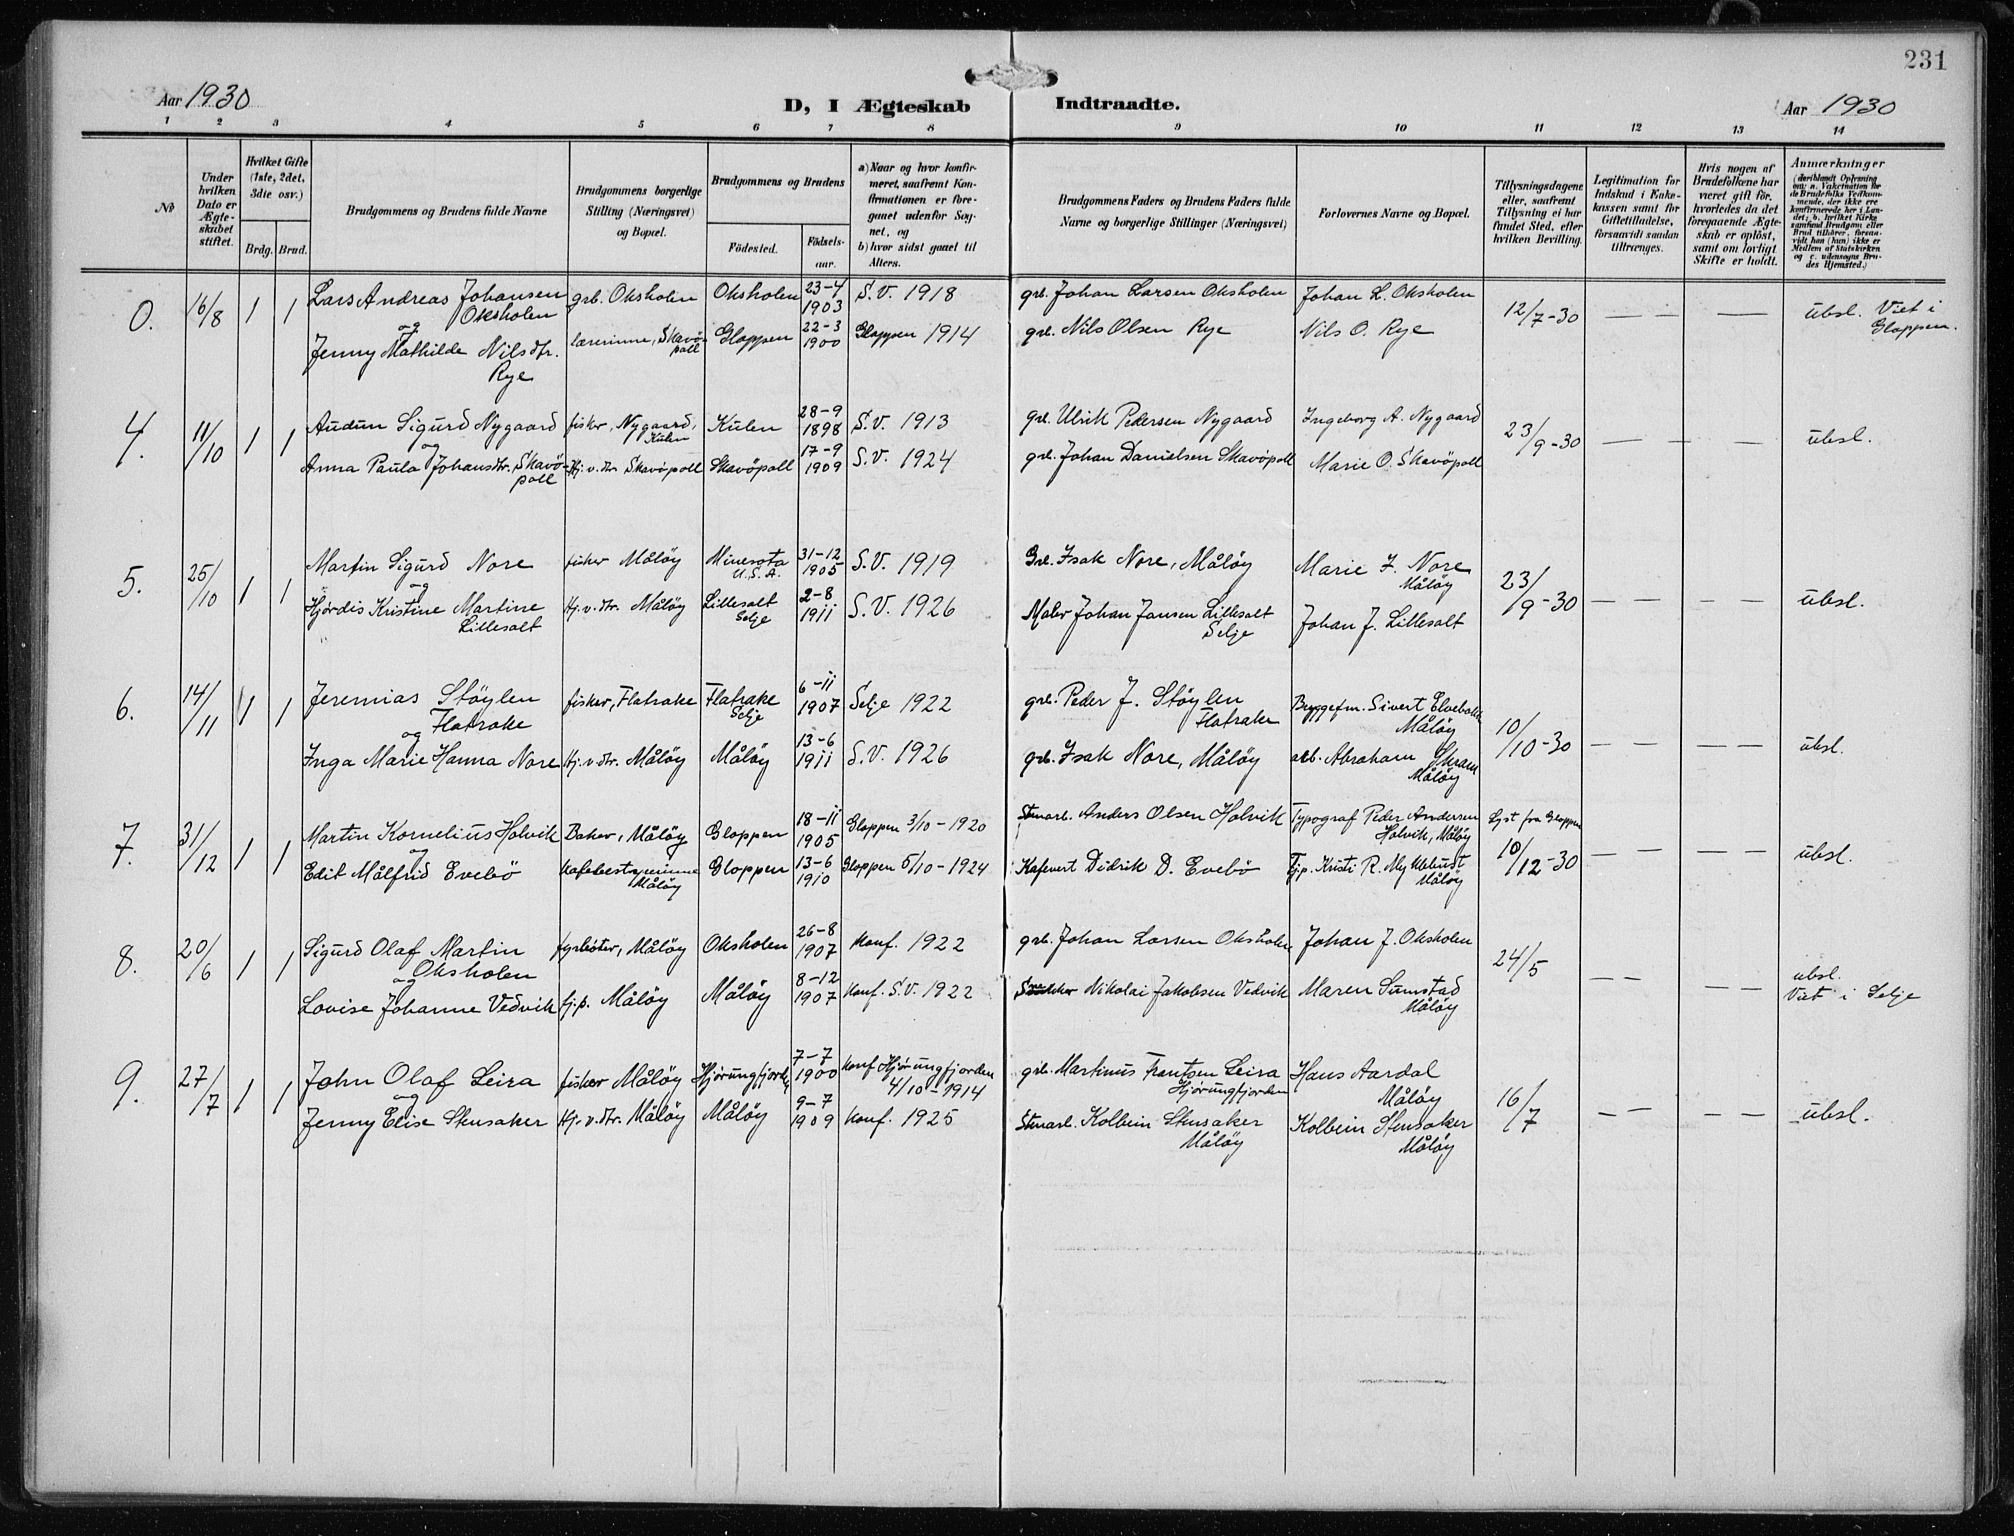 231
Aar 1930
D, I Ægteskab Indtraadte.
Aar 1930
1 2 3 4 5 6 7 8 9 10 11 12 13 14
No
Under hvilken Dato er Ægteskabet stiftet.
Hvilket Gifte (1ste, 2det, 3die osv.)
Brdg. Brud.
Brudgommens og Brudens fulde Navne
Brudgommens borgerlige Stilling (Næringsvei) og Bopæl.
Brudgommens og Brudens
Födested.
Födsels-aar.
a) Naar og hvor konfirmeret, saafremt Konfirmationen er foregaaet udenfor Sognet, og
b) hvor sidst gaaet til Alters.
Brudgommens Faders og Brudens Faders fulde Navne og borgerlige Stillinger (Næringsvei)
Forlovernes Navne og Bopæl.
Tillysningsdagene eller, saafremt Tillysning ei har fundet Sted, efter hvilken Bevilling.
Legitimation for Indskud i Enkekassen samt for Giftetilladelse, forsaavidt saadan tiltrænges.
Hvis nogen af Brudefolkene har været gift før, hvorledes da det foregaaende Ægteskab er opløst, samt om lovligt Skifte er holdt.
Anmærkninger
(deriblandt Oplysning om: a. Vakcination for de Brudefolks Vedkommende, der ikke ere konfirmerede her i Landet; b. hvilket Kirkesamfund Brudgom eller Brud tilhører, forsaavidt han (hun) ikke er Medlem af Statskirken og c. udensogns Brudes Hjemsted.)
0. 16/8 1 1 Lars Andreas Johansen Oksholen grb. Oksholen Oksholen 23-4 1903 S.V. 1918 grb. Johan Larsen Oksholen Johan L. Oksholen 12/7-30 — — — ubsl. Viet i Gloppen.
og
Jenny Mathilde Nilsdtr. Rye lærerinne, Skavöpoll Gloppen 22-3 1900 Gloppen 1914 grb. Nils Olsen Rye Nils O. Rye
4. 11/10 1 1 Audun Sigurd Nygaard fisker, Nygaard, Kulen Kulen 28-9 1898 S.V. 1913 grb. Ulrik Pedersen Nygaard Ingeborg A. Nygaard 23/9-30 — — — — ubsl.
og
Anna Paula Johansdtr. Skavöpoll Hj.v.dtr. Skavöpoll Skavöpoll 17-9 1909 S.V. 1924 grb. Johan Danielsen Skavöpoll Marie O. Skavöpoll
5. 25/10 1 1 Martin Sigurd Nore fisker Målöy Minesota U.S.A. 31-12 1905 S.V. 1919 Grb. Isak Nore, Målöy Marie I. Nore Målöy 23/9-30 — — — — ubsl.
og
Hjördis Kristine Martine Lillesalt Hj.v.dtr. Målöy Lillesalt Selje 2-8 1911 S.V. 1926 Maler Johan Jansen Lillesalt Selje Johan J. Lillesalt
6. 14/11 1 1 Jeremias Stöylen Flatrake fisker, Flatrake Flatrake Selje 6-11 1907 Selje 1922 grb. Peder J. Stöylen Flatrake Byggefm. Sivert Målöy 10/10-30 — — — — ubsl.
og
Inga Marie Hanna Nore Hj.v.dtr. Målöy Målöy 13-6 1911 S.V. 1926 grb. Isak Nore, Målöy arb. Abraham Skram Målöy
7. 31/12 1 1 Martin Kornelius Holvik Baker, Målöy Gloppen 18-11 1905 Gloppen 3/10-1920 Stenarb. Anders Olsen Holvik Typograf Peder Andersen Holvik, Målöy Lyst fra Gloppen 10/12-30 — — — — ubsl.
og
Edit Målfrid Evebö Kafebestyrerinne Målöy Gloppen 13-6 1910 Gloppen 5/10-1924 Kafevert Didrik D. Evebö Tj.p. Kristi R. Myklebust Målöy
8. 20/6 1 1 Sigurd Olaf Martin Oksholen fyrböter, Målöy Oksholen 26-8 1907 Konf. 1922 grb. Johan Larsen Oksholen Johan J. Oksholen 24/5 — — — — ubsl. Viet i Selje
og
Lovise Johanne Vedvik tj.p. Målöy Målöy 8-12 1907 Konf. S.V. 1922 Snekker Nikolai Jakobsen Vedvik Maren Sumstad Målöy
9. 27/7 1 1 John Olaf Leira fisker Målöy Hjörungfjorden 7-7 1900 Konf Hjörungfjorden 4/10-1914 grb. Martinus Frantsen Leira Hjörungfjorden Hans Aardal Målöy 16/7 — — — — ubsl.
og
Jenny Elise Stensaker Hj.v.dtr. Målöy Målöy 9-7 1909 Konf. 1925 Stenarb. Kolbein Stensaker Målöy Kolbein Stensaker Målöy